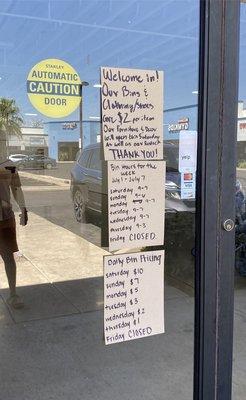 STANLEY
AUTOMATIC
CAUTION
DOOR
Welcome in!
Our Bins &
Clothing/Shoes
are $2 per item
Our furniture & Decor
will open this Saturday
as well as our
THANK YOU!!
Bin Hours for
the week
July 1 - July 7
Saturday 9-7
Sunday 9-6
Monday 9-7
Tuesday 9-7
Wednesday 9-7
Thursday 9-3
Friday CLOSED
Daily Bin Pricing
Saturday $10
Sunday $7
Monday $5
Tuesday $3
Wednesday $2
Thursday $1
Friday CLOSED